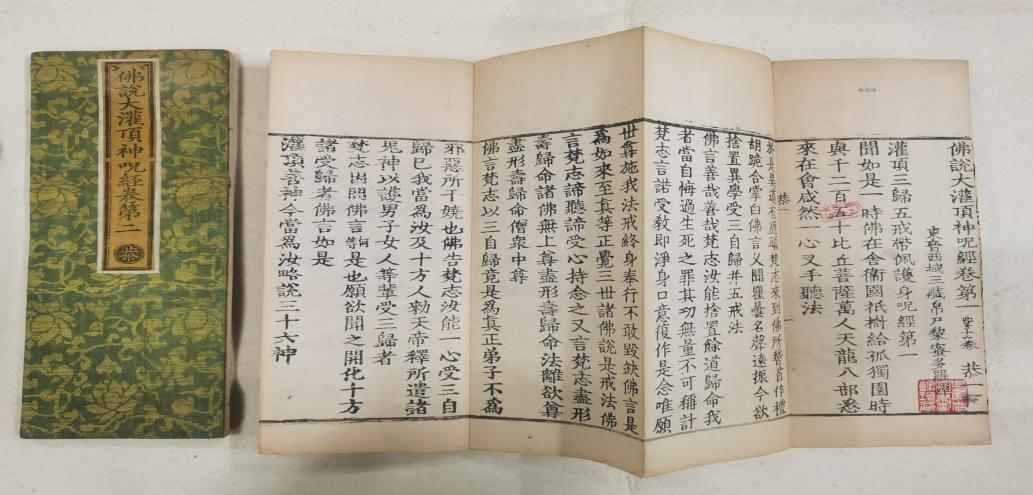 佛說大灌頂神呪經卷第二 恭
佛說大灌頂神呪經卷第一 恭一
東晉西域三藏帛尸黎蜜多羅譯
灌頂三歸五戒帶佩護身呪經第一
聞如是一時佛在舍衞國祇樹給孤獨園時
與千二百五十比丘菩薩萬人天龍八部悉
來在會咸然一心叉手聽法
恭一
於是異道有鹿頭梵志來到佛所稽首作禮
胡跪合掌白佛言久聞瞿曇名聲遠振今欲
捨置異學受三自歸并五戒法
佛言善哉善哉梵志汝能捨置餘道歸命我
者當自悔過生死之罪其功無量不可稱計
梵志言諾受教即淨身口意復作是念唯願
世尊施我法戒終身奉行不敢毀缺佛言是
爲如來至真等正覺三世諸佛說是戒法佛
言梵志諦聽諦受心持念之又言梵志盡形
壽歸命諸佛無上尊盡形壽歸命法離欲尊
盡形壽歸命僧衆中尊
佛言梵志以三自歸竟是爲真正弟子不爲
邪惡所干嬈也佛告梵志汝能一心受三自
歸已我當爲汝及十方人勑天帝釋所遣諸
鬼神以護男子女人等輩受三歸者
梵志因問佛言何等是也願欲聞之開化十方
諸受歸者佛言如是
灌頂善神今當爲汝略說三十六神